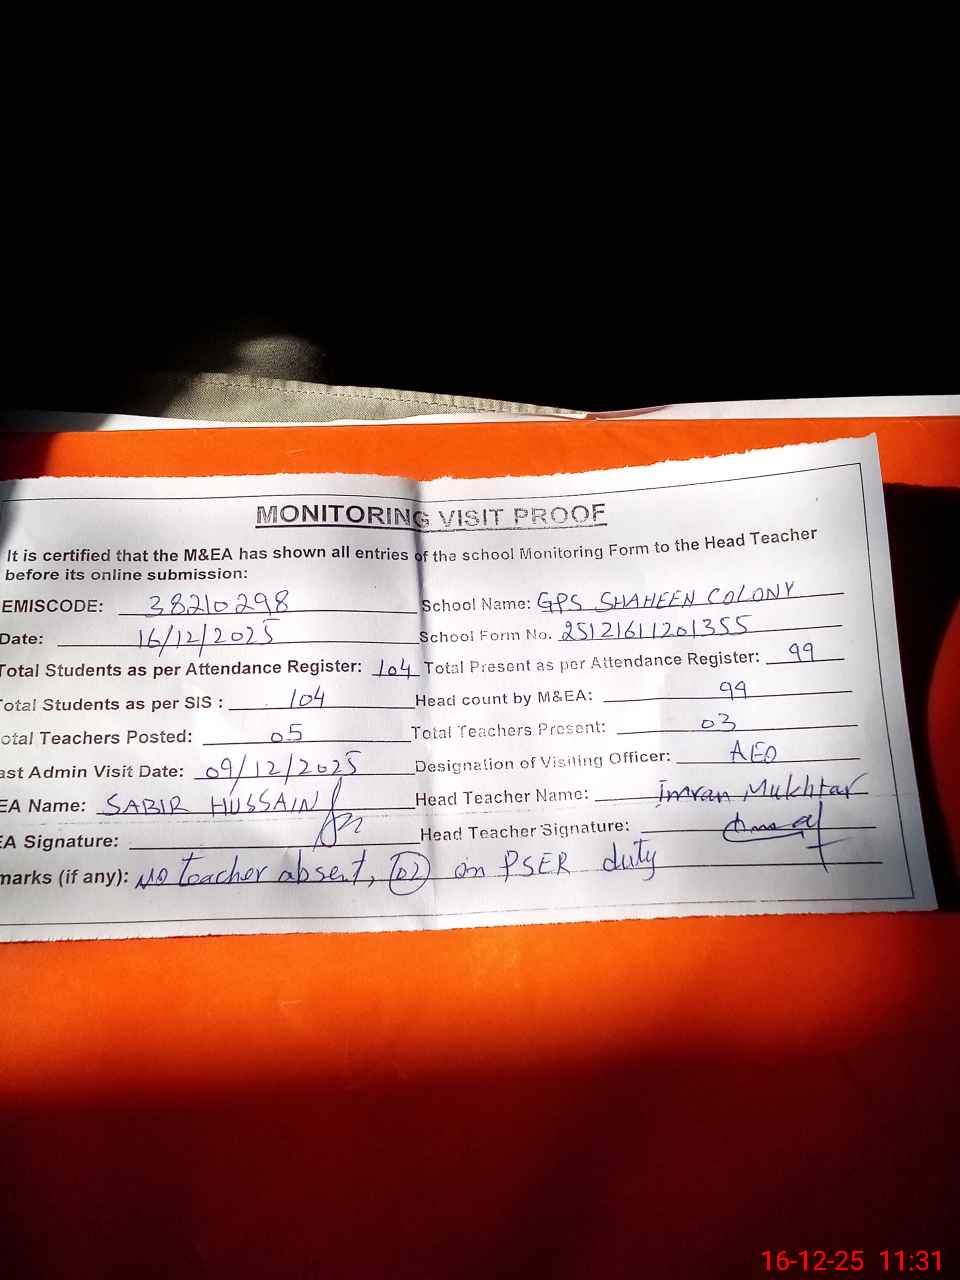 MONITORING VISIT PROOF
It is certified that the M&EA has shown all entries of the school Monitoring Form to the Head Teacher
before its online submission:
EMISCODE: 38210298 School Name: GPS SHAHEEN COLONY
Date: 16/12/2025 School Form No. 25121611201355
Total Students as per Attendance Register: 104 Total Present as per Attendance Register: 99
Total Students as per SIS : 104 Head count by M&EA: 99
otal Teachers Posted: 05 Total Teachers Present: 03
ast Admin Visit Date: 09/12/2025 Designation of Visiting Officer: AEO
EA Name: SABIR HUSSAIN Head Teacher Name: Imran Mukhtar
EA Signature: Head Teacher Signature:
marks (if any): No teacher absent, 02 on PSER duty
16-12-25 11:31